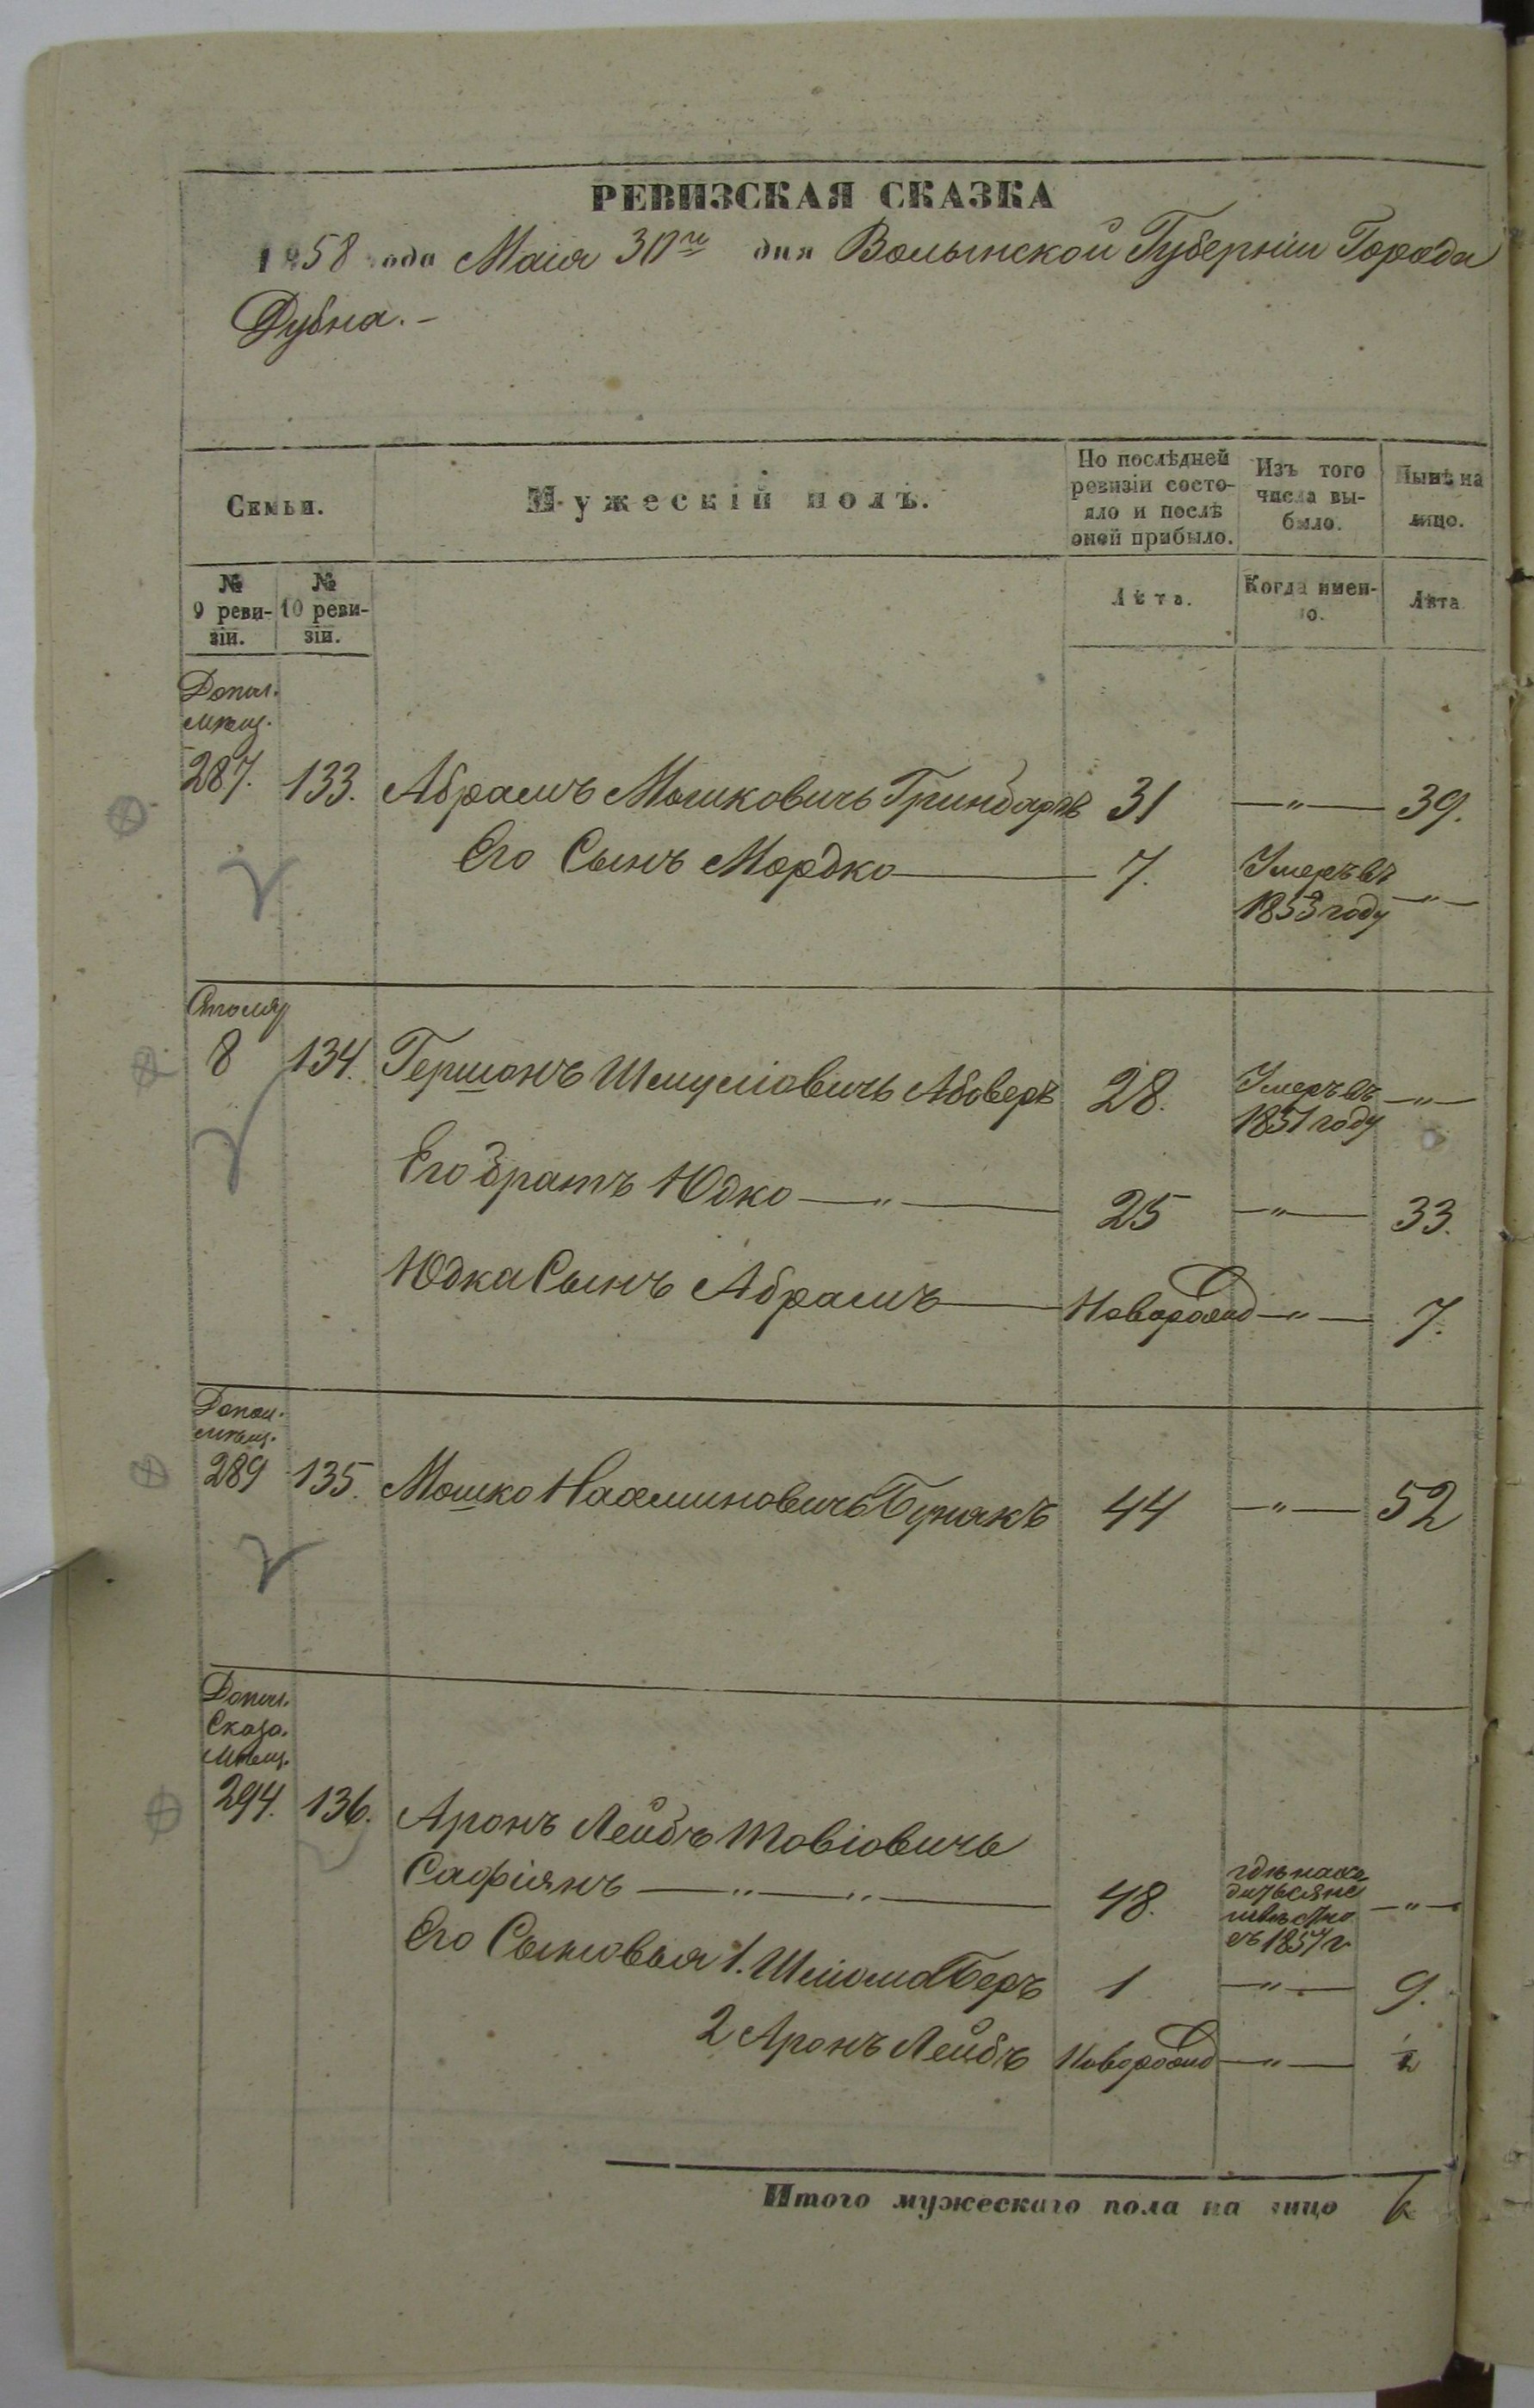 РЕВИЗСКАЯ СКАЗКА
1858 года Маія 30го дня Волынской Губерніи Города
Дубна.-
Семьи.
Мужескій полъ.
По послѣдней
ревизіи состо-
яло и послѣ
оной прибыло.
Изъ того
числа вы-
было.
Нынѣ на
лицо.
№
9 реви-
зіи.
№
10 реви-
зіи.
Лѣта.
Когда имен-
но.
Лѣта
Допол.
мѣщ.
287. 133. Абрамъ Мошковичъ Гринбаргъ 31 —"— 39.
Его Сынъ Мордко — 7. Умеръ въ
1853 году —"—
8 134. Гершонъ Шмуліовичъ 28. Умеръ въ —"—
1851 году
Его братъ Юдко —"— 25 —"— 33.
Юдка Сынъ Абрамъ — Новорожд —"— 7.
Допол.
мѣщ.
289 135. Мошко Нахминовичъ Бунякъ 44 —"— 52
Допол.
Сказ.
мѣщ.
294. 136. Аронъ Лейбъ Товіовичъ
Сафіянъ —"—"— 48. гдѣ нахо
дится не
извѣстно
съ 1857 г —"—
Его Сыновья 1. Шліома Беръ 1 —"— 9.
2 Аронъ Лейбъ Новорожд —"— 1/2
Итого мужескаго пола на лицо 6